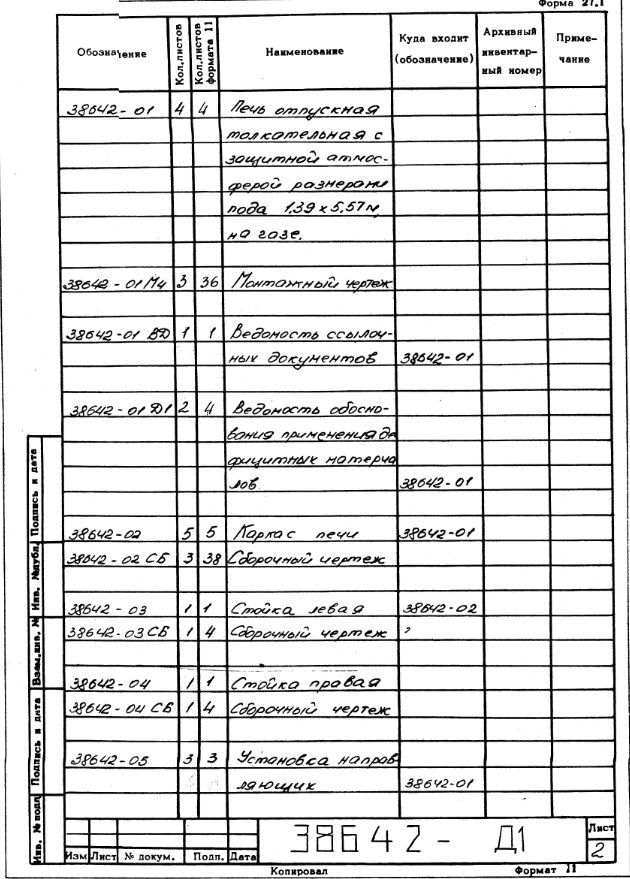 Форма 27.1
Обозначение Кол.листов Кол.листов формата 11 Наименование Куда входит (обозначение) Архивный инвентар-ный номер Приме-чание
38642-01 4 4 Печь отпускная
толкательная с
защитной атмос-
ферой размерами
пода 1,39 x 5,57м
на газе.
38642-01 МЧ 3 36 Монтажный чертеж
38642-01 ВД 1 1 Ведомость ссылоч-
ных документов 38642-01
38642-01 Д1 2 4 Ведомость обосно-
вания применения де
фицитных материа
лов. 38642-01
38642-02 5 5 Каркас печи 38642-01
38642-02 СБ 3 38 Сборочный чертеж
38642-03 1 1 Стойка левая 38642-02
38642-03 СБ 1 4 Сборочный чертеж
38642-04 1 1 Стойка правая
38642-04 СБ 1 4 Сборочный чертеж
38642-05 3 3 Установка направ
ляющих 38642-01
Инв. № подл Подпись и дата Взам.инв. № Инв. №дубл. Подпись и дата
38642- Д1
Лист
2
Изм Лист № докум. Подп. Дата
Копировал Формат 11